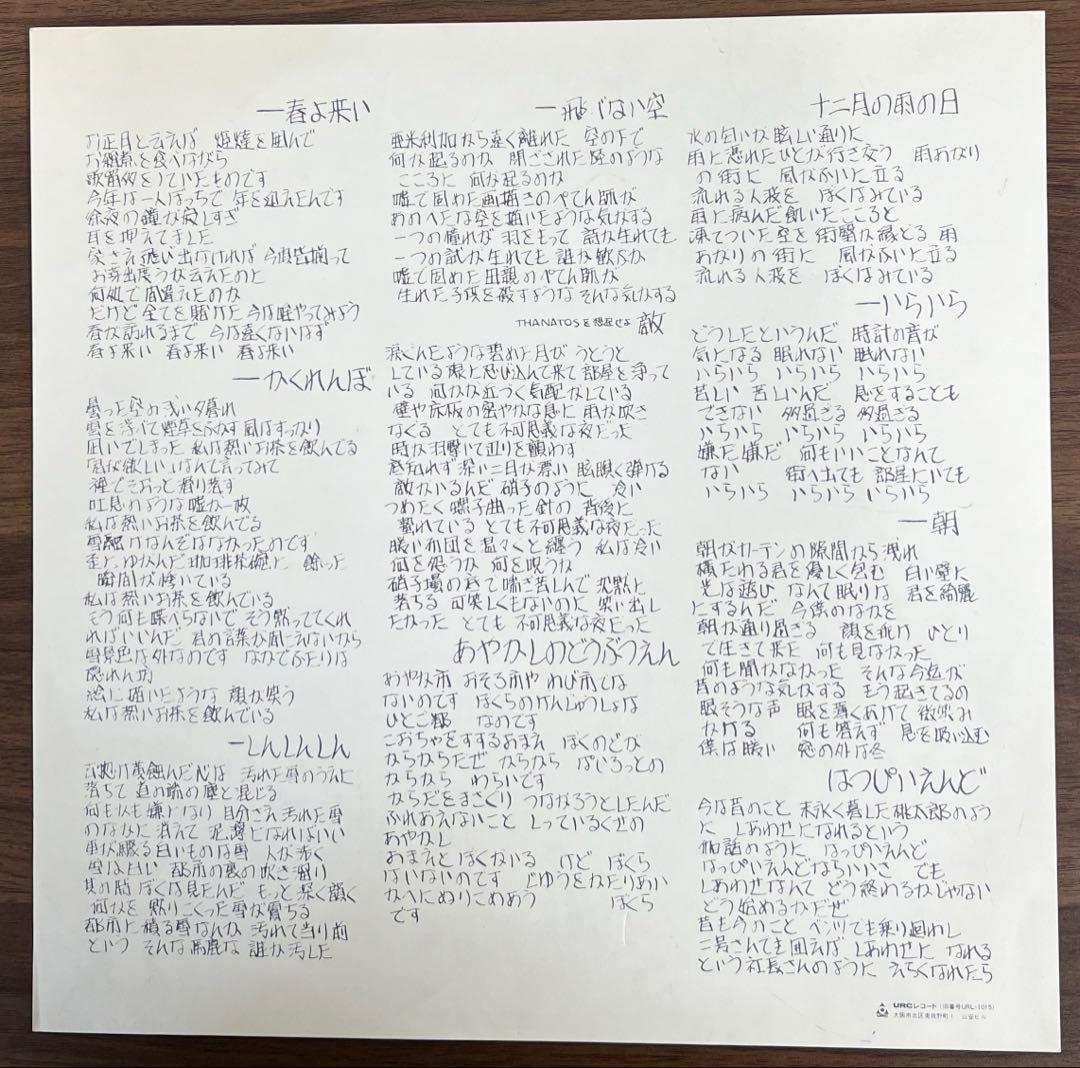 一春よ来い
お正月と云えば 炬燵を囲んで
お雑煮を食べながら
歌留多をしていたものです
今年は一人ぼっちで 年を迎えたんです
除夜の鐘が寂しすぎ
耳を押えてました
家さえ飛び出なければ 今頃皆揃って
お芽出度うが云えたのに
何処で間違えたのか
だけど全てを賭けた 今は唯やってみよう
春が訪れるまで 今は遠くないはず
春よ来い 春よ来い 春よ来い
一かくれんぼ
曇った空の浅い夕暮れ
雲を浮べて煙草をふかす 風はすっかり
凪いでしまった 私は熱いお茶を飲んでる
「気が欲しい」なんて言ってみて
裡でそおっと滑り落す
吐息のような嘘が一枚
私は熱いお茶を飲んでる
雪融けなんぞはなかったのです
歪にゆがんだ珈琲碗に 余った
瞬間が悸いている
私は熱いお茶を飲んでいる
もう何も喋べらないで そう黙っててくれ
ればいいんだ 君の言葉が聞こえないから
雪景色は外なのです なかでふたりは
隠れん坊
絵に描いたような 顔が笑う
私は熱いお茶を飲んでいる
一しんしんしん
古惚け蒼蝕んだ心は 汚れた雪のうえに
落ちて 道の端の塵と混じる
何もかも嫌になり 自分さえ汚れた雪
のなかに 消えて 泥濘になればいい
車が綴る白いものは雪 人が歩く
雪は白い 都市の裏の吹き溜り
其の時ぼくは見たんだ もっと深く韻く
何かを 黙りこくった雪が賁ちる
都市に積る雪なんか 汚れて当り前
という そんな馬鹿な 誰が汚した
一飛べない空
亜米利加から遠く離れた 空の下で
何が起るのか 閉ざされた陸のような
こころに 何が起るのか
嘘で固めた画描きのぺてん師が
あのへたな空を描いたような気がする
一つの憧れが 羽をもって 詩が生れても
一つの試が生れても 誰が歓ぶか
嘘で固めた母親のぺてん師が
生れた子供を殺すような そんな気がする
THANATOSを想起せよ 敵
涙ぐんだような碧めた月が うとうと
している 窓に忍び込んで来て 部屋を浮って
いる 何かが近づく気配がしている
壁や床板の密やかな息に 雨が吹き
なぐる とても不可思議な夜だった
時が羽撃いて辺りを顫わす
底知れず 深い二日が漂い 眩瞑く弾ける
敵がいるんだ 硝子のように 冷い
つめたく 螺子曲った 針の 背後に
載れている とても不可思議な夜だった
暖い布団を温々と纏う 私は冷い
何を怨うか 何を呪うか
硝子壜の底で喘ぎ苦しんで 沈黙に
落ちる 可笑しくもないのに 笑い出し
たかった とても 不可思議な夜だった
あやかしのどうぶつえん
あやか市 おそろ市や わび市では
ないのです ぼくらのげんじゅうしょは
ひとご都 なのです
こおちゃをすするおまえ ぼくのどが
からからだぜ からから ぱいろっとの
からから わらいです
からだをまさぐり つながろうとしたんだ
ふれあえないこと しっているくせの
あやかし
おまえとぼくがいる けど ぼくら
はいないのです じゆうをかたりあい
かべにぬりこめあう ぼくら
です
十二月の雨の日
水の匂いが眩しい通りに
雨に憑れたひとが行き交う 雨あがり
の街に 風がふいに立る
流れる人波を ぼくはみている
雨に病んだ飢いたこころと
凍てついた空を 街翳が縁どる 雨
あがりの街に 風がふいに立る
流れる人波を ぼくはみている
一いらいら
どうしたというんだ 時計の音が
気になる 眠れない 眠れない
いらいら いらいら いらいら
苦しい 苦しいんだ 息をすることも
できない 多過ぎる 多過ぎる
いらいら いらいら いらいら
嫌だ 嫌だ 何もいいことなんて
ない 街へ出ても 部屋にいても
いらいら いらいら いらいら
一朝
朝がカーテンの隙間から洩れ
横たわる君を優しく包む 白い壁に
光は遊び なんて眠りは 君を綺麗
にするんだ 今僕のなかを
朝が通り過ぎる 顔を疵け ひとり
で生きて来た 何も見なかった
何も聞かなかった そんな今迄が
昔のような気がする もう起きてるの
眼そうな声 眼を薄くあけて 微笑み
かける 何も答えず 息を吸い込む
僕は暖い 窓の外は冬
はっぴいえんど
今は昔のこと 末永く暮した桃太郎のよう
に しあわせになれるという
御話のように はっぴいえんど
はっぴいえんどならいいさ でも
しあわせなんて どう終わるかじゃない
どう始めるかだぜ
昔も今のこと ベンツでも乗り回わし
二号さんでも囲えば しあわせに なれる
という社長さんのように えらくなれたら
URCレコード (旧番号URL-1015)
大阪市北区東我野町1 三安ビル